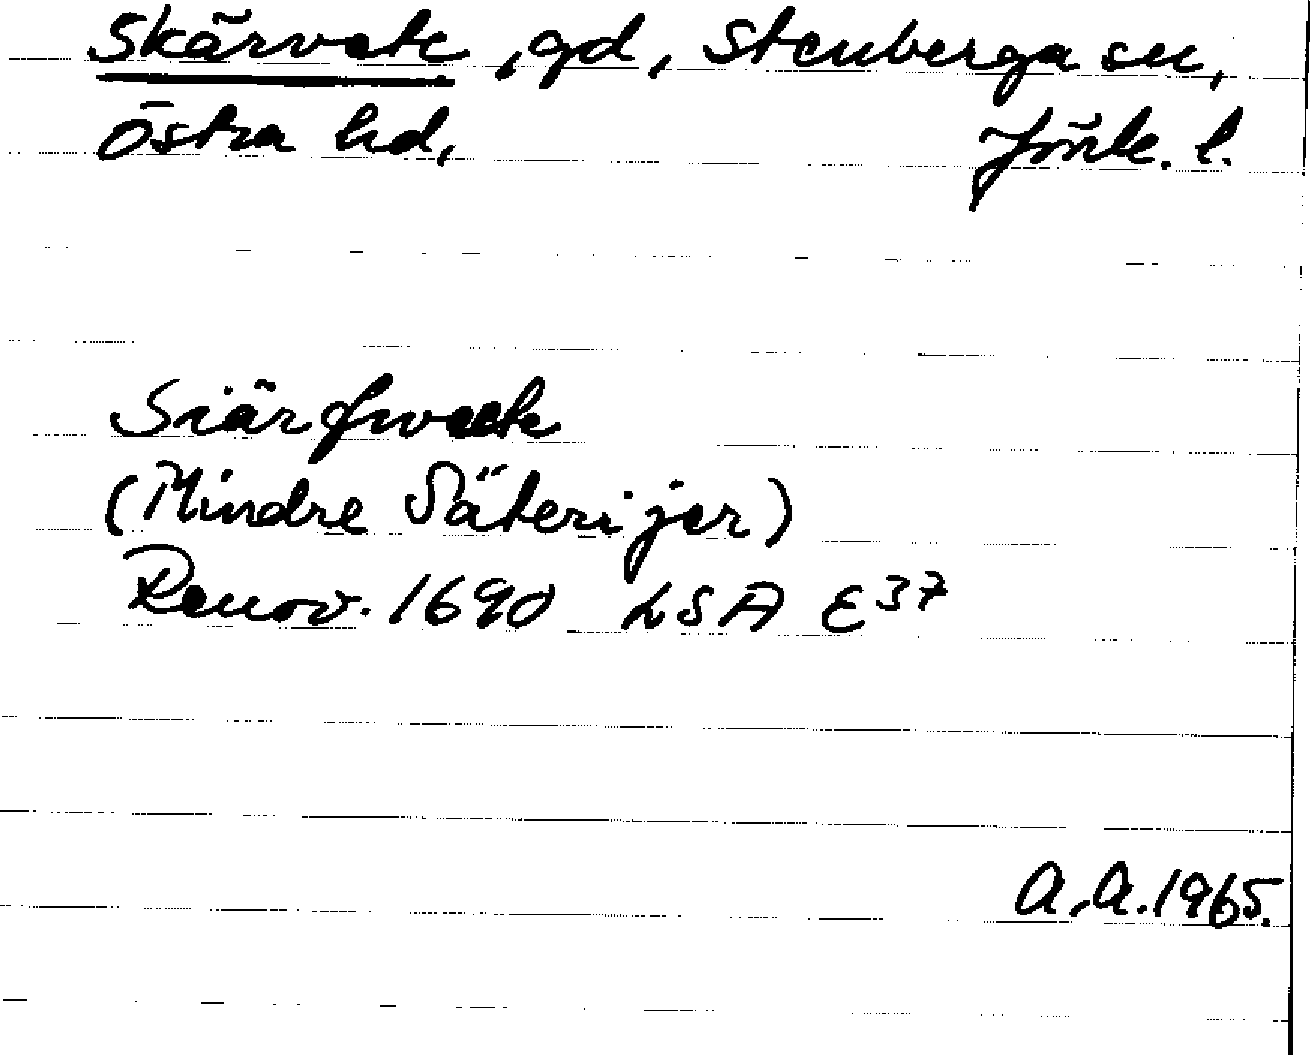 Skärvete, gd, Stenberga sn,
Östra hd, Jönk. l.
Siärfweete
(Mindre Säterijer)
Renov. 1690 LSA E37
A.A. 1965.